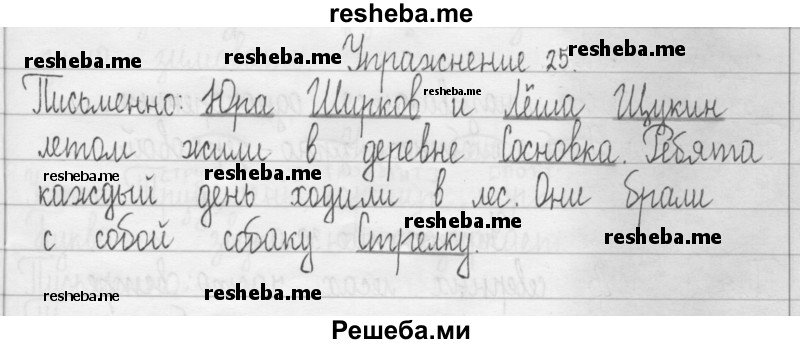 resheba.me
resheba.me resheba.me Упражнение 25. resheba.me
Письменно: Юра Ширков resheba.me и Лёша Щукин
летом жили в деревне Сосновка. Ребята
resheba.me resheba.me
каждый день ходили в лес. Они брали
с собой собаку Стрелку. resheba.me resheba.me
resheba.me resheba.me
Решеба.ми